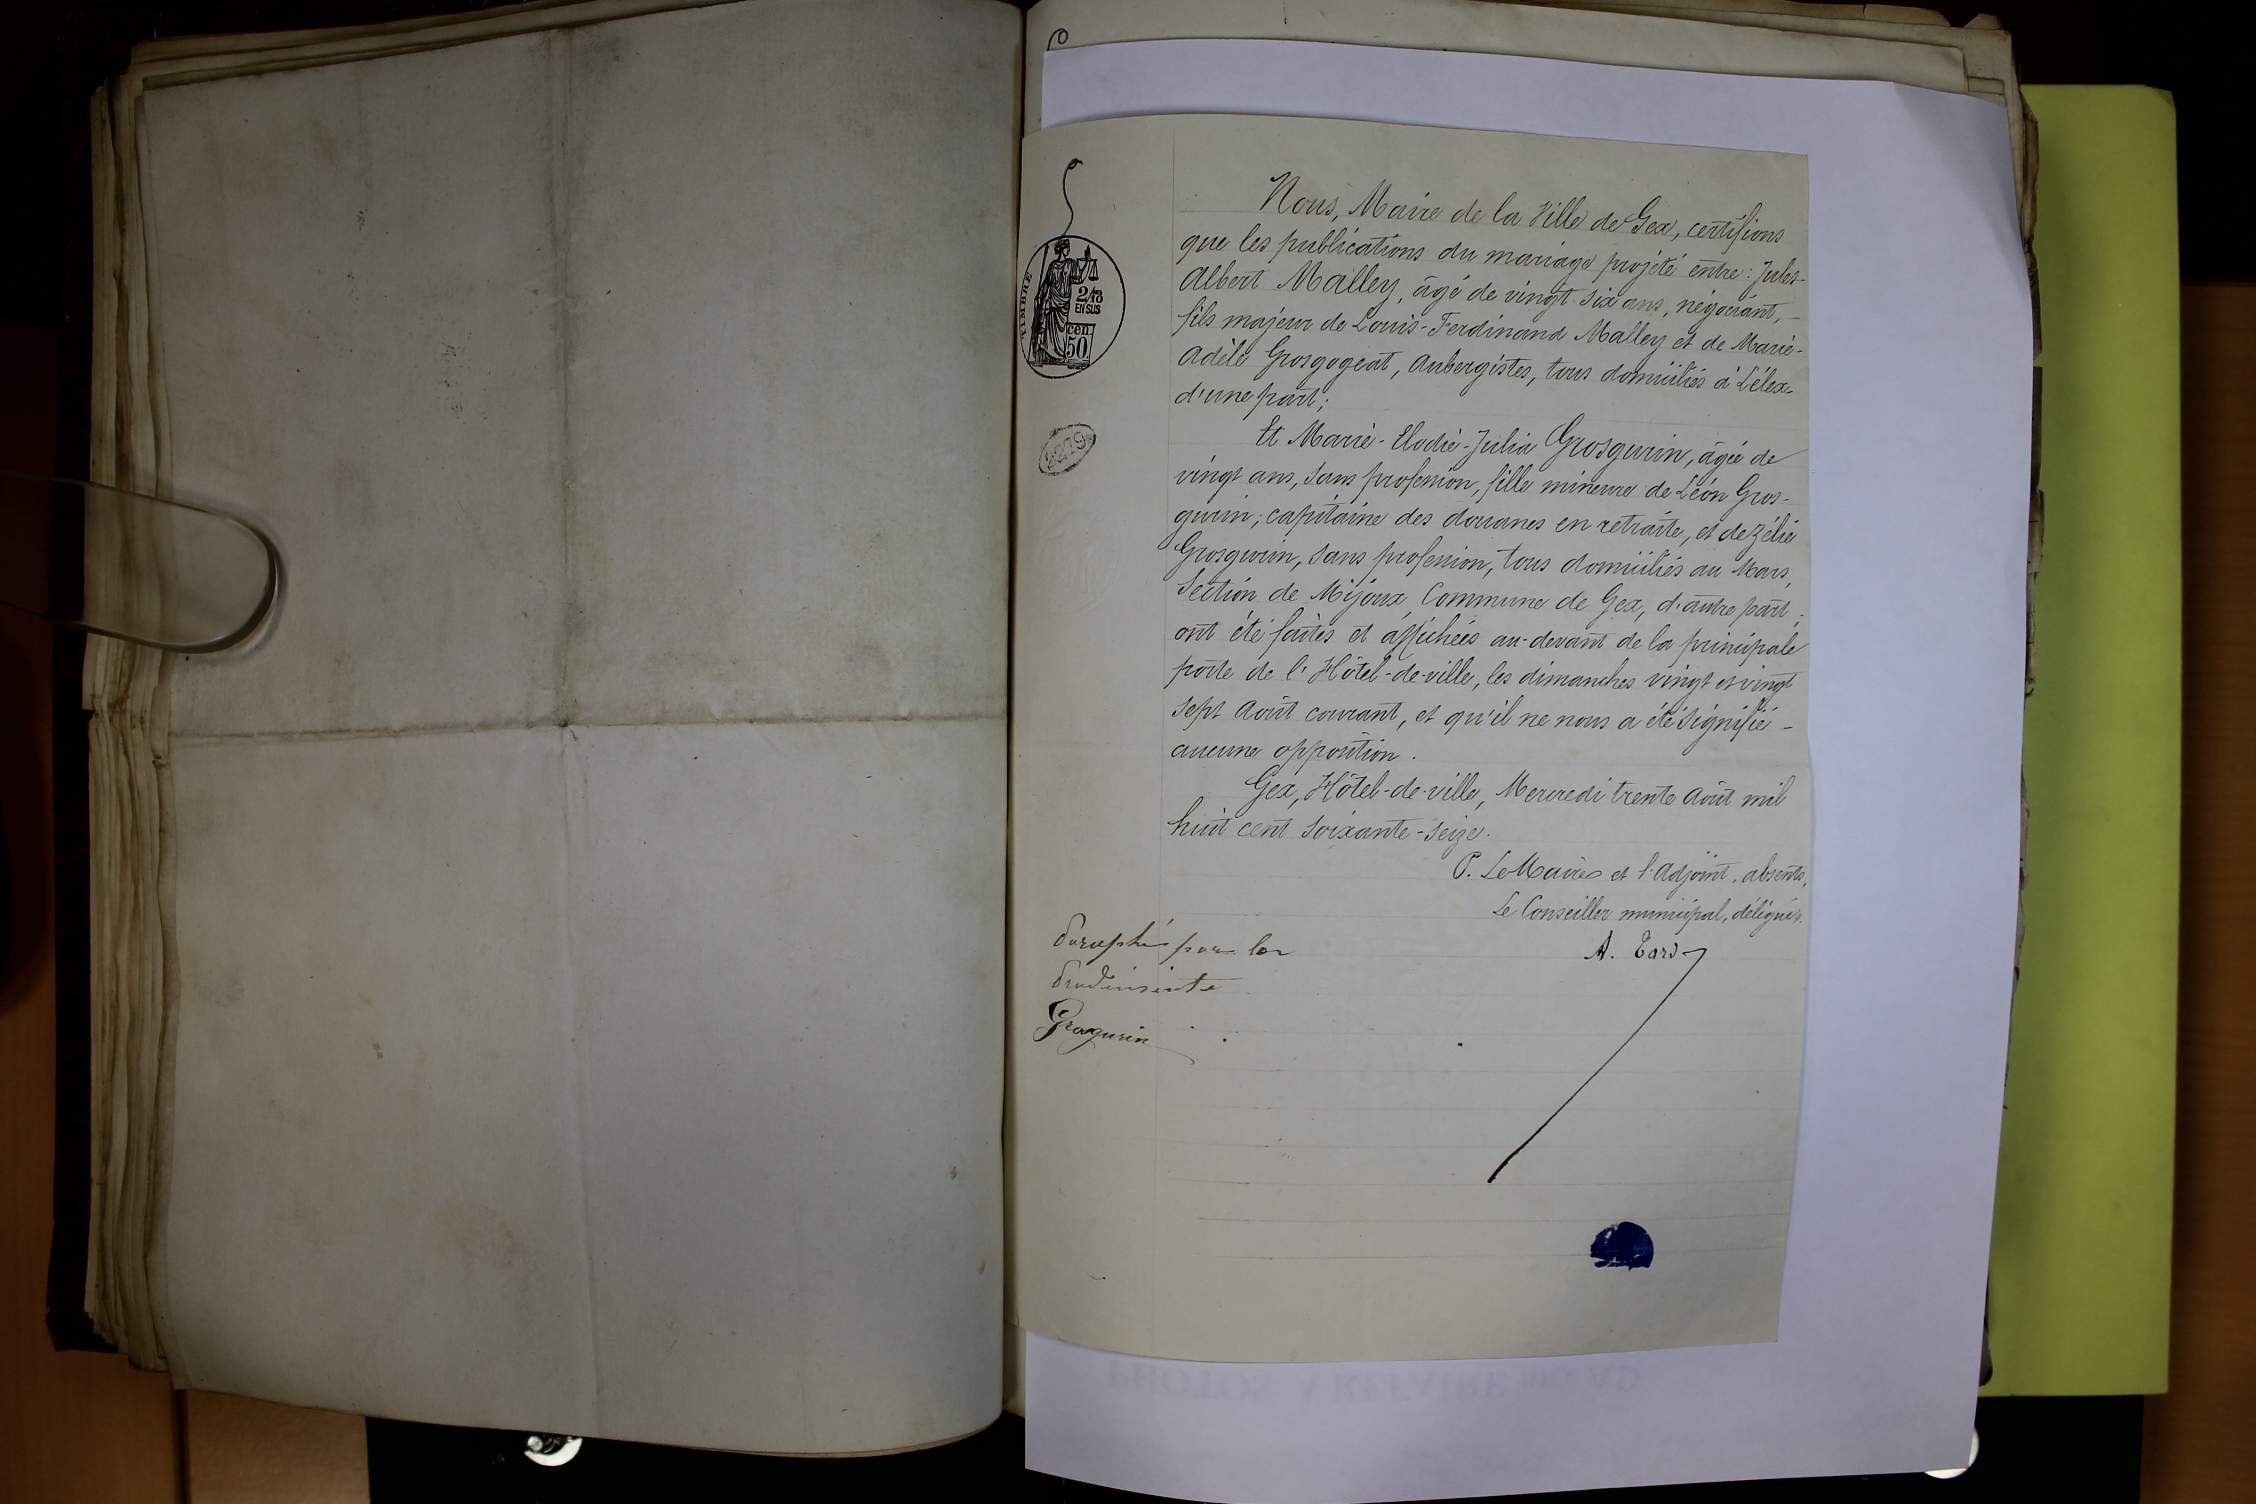 TIMBRE
2/10
EN SUS
cen
50
2279
Nous, Maire de la Ville de Gex, certifions
que les publications du mariage projeté entre : Jules-
Albert Malley, âgé de vingt six ans, négociant, -
fils majeur de Louis-Ferdinand Malley et de Marie-
Adèle Grosgogeat, Aubergistes, tous domiciliés à Lélex
d'une part ;
Et Marie-Elodie-Julia Grosgurin, âgée de
vingt ans, sans profession, fille mineure de Léon Gros-
gurin, capitaine des douanes en retraite, et de Zélie
Grosgurin, sans profession, tous domiciliés au Mars,
Section de Mijoux Commune de Gex, d'autre part ;
ont été faites et affichées au-devant de la principale
porte de l'Hôtel-de-ville, les dimanches vingt et vingt
sept Août courant, et qu'il ne nous a été signifié -
aucune opposition.
Gex, Hôtel-de-ville, Mercredi trente Août mil
huit cent soixante-seize.
P. Le Maire et l'Adjoint, absents,
Le Conseiller municipal, délégué.
A. Tard
paraphé par le
Grosgurin